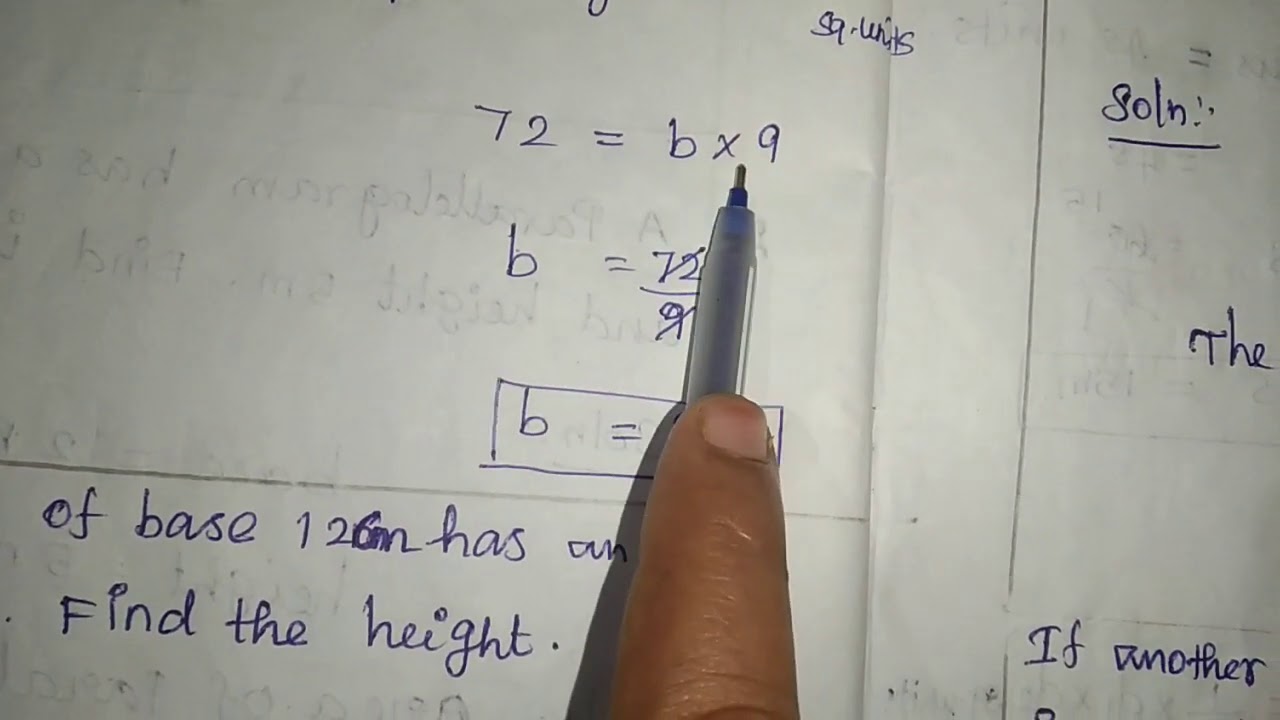 sq.units
72 = b × 9
b = 72
9
b =
of base 12cm has an
Find the height.
=
Soln:
The
If another